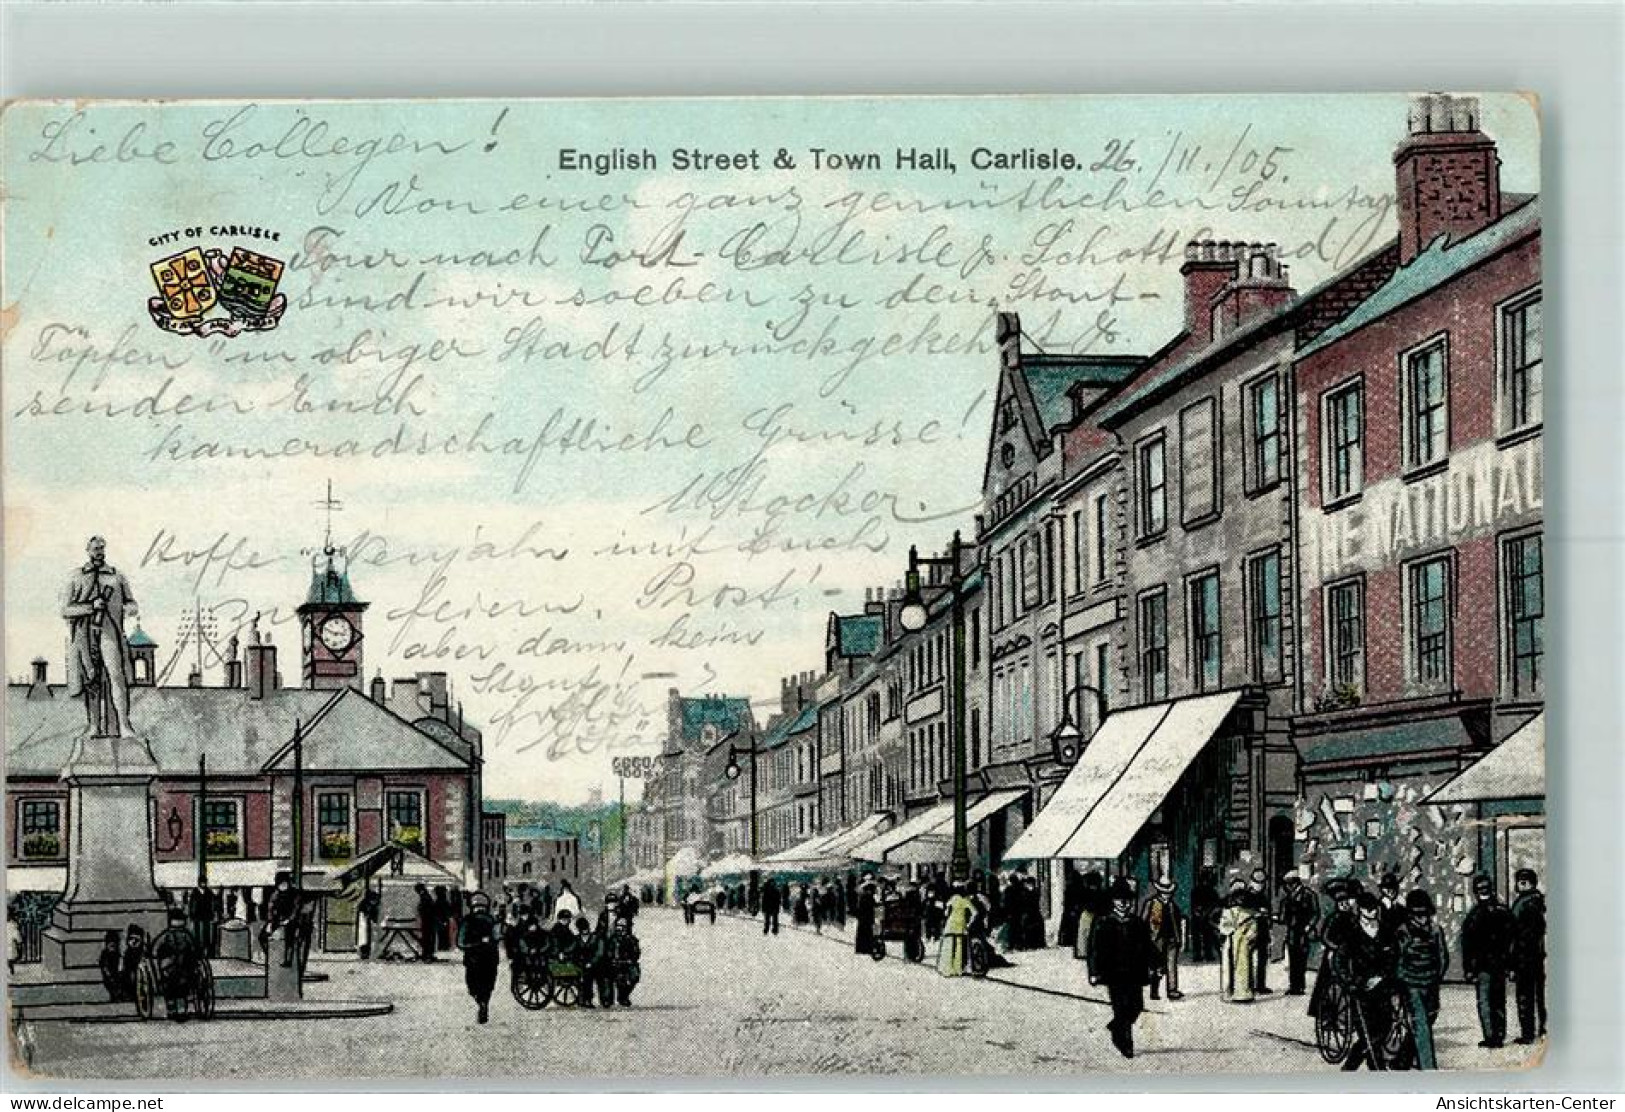 Liebe Collegen!
English Street & Town Hall, Carlisle. 26./11./05.
Von einer ganz gemütlichen Sonntags
CITY OF CARLISLE
Tour nach Port-Carlisle & Schottland
sind wir soeben zu den „Stout-
Töpfen" in obiger Stadt zurückgekehrt &
senden Euch
kameradschaftliche Grüsse!
Stocker.
Hoffe Neujahr mit Euch
zu feiern. Prost!-
aber dann kein
Stout! -
THE NATIONAL
delcampe.net
Ansichtskarten-Center